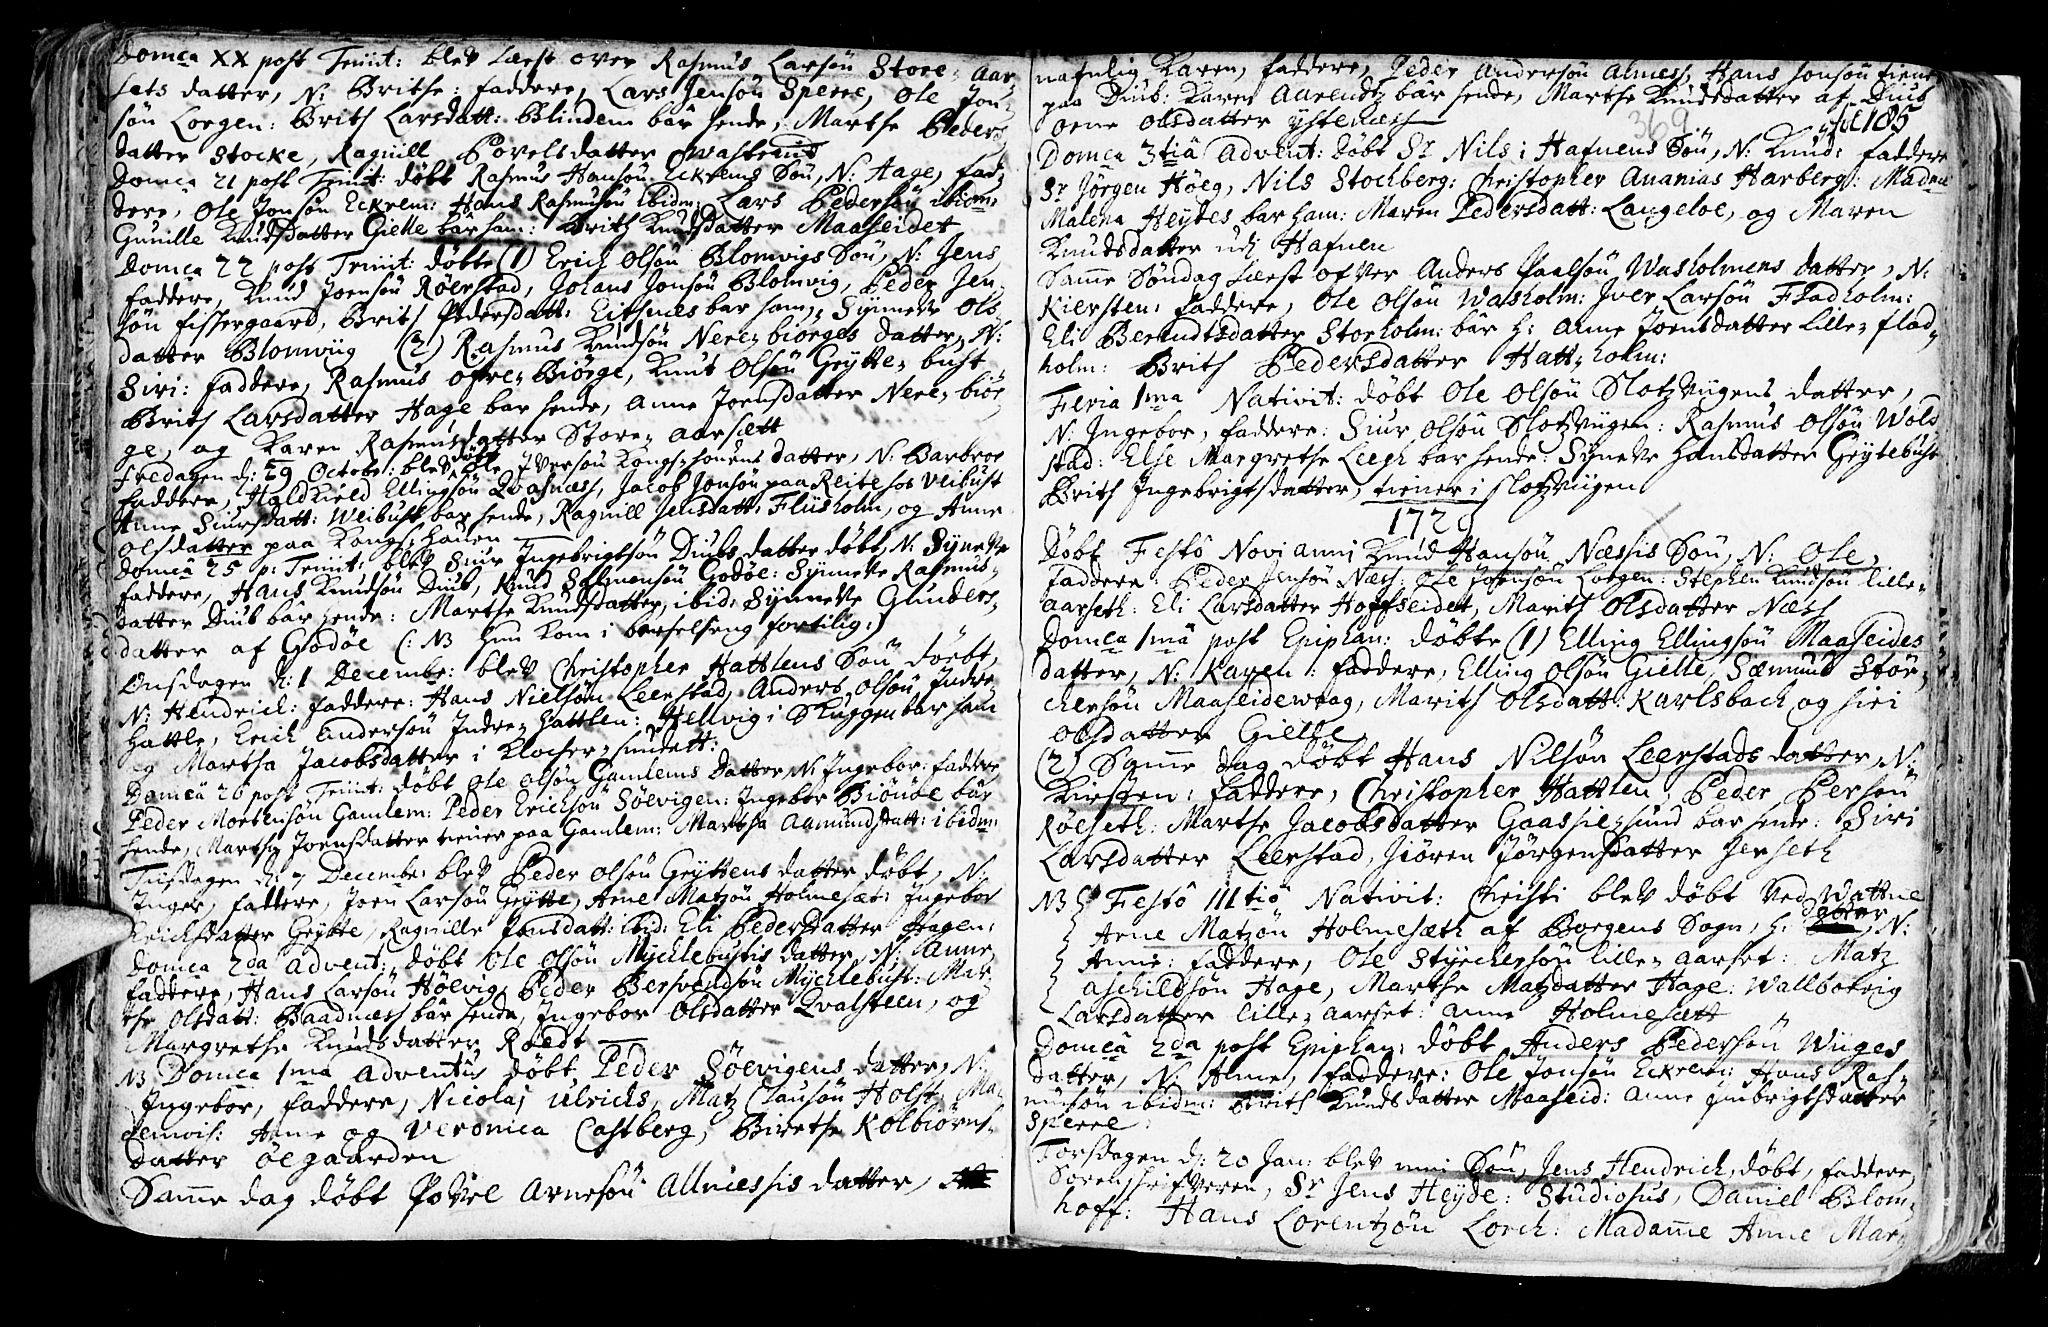 Domca XX post Trinit: blev læst over Rasmus Larsøn Store-Aar-
sets datter, N: Brithe: faddere, Lars Jensøn Sperre, Ole Jon-
søn Lorgen: Brith Larsdatt: Blindem bar hende, Marthe Peders-
datter Stocke, Ragnill Povelsdatter Wastrand
Domca 21 post Trinit: døbt Rasmus Hansøn Eckrems Søn, N: Aage, fad-
dere, Ole Jonsøn Eckrem: Hans Rasmusøn ibidm: Lars Pedersøn ibidm:
Gunille Knudsdatter Gielle bar ham: Brith Knudsdatter Maaseidet
Domca 22 post Trinit: døbte (1) Erich Olsøn Blomvigs Søn, N: Jens
faddere, Knud Joensøn Røerstad, Johans Jonsøn Blomvig, Peder Jen-
søn fiskergaard, Brith Pedersdatt: Eithnes bar ham, Synneve Ols-
datter Blomviig (2) Rasmus Knudsøn Nere-biørges datter, N:
Siri: faddere, Rasmus Ofre-Biørge, Knut Olsøn Grytte-bust
Brith Larsdatter Hage bar hende, Anne Joensdatter Nere-biør-
ge, og Karen Rasmusdatter Store-Aarsætt
Fredagen d: 29 Octobr: blev døbt Ole Iversøn Kongs-honens datter, N: Barbroe
faddere, Haldkield Ellingsøn Qvasness, Jacob Jonsøn paa Reite hos Veibust
Anne Siursdatt: Weibust bar hende, Ragnill Jensdatt: Fliisholm, og Anne
Olsdatter paa Kongs-honen
Domca 25 p: Trinit: blev Siur Ingebrigtsøn Diubs datter døbt, N: Synneve
faddere, Hans Knudsøn Diub, Knud Salmonsøn Godøe: Synneve Rasmus-
datter Diub bar hende: Marthe Knudsdatter, ibid, Synneve Gunders-
datter af Godøe (: NB hun kom i barselseng fortilig:)
Onsdagen d: 1 Decembr: blev Christopher Hattlens Søn døbt,
N: Hendrich: faddere: Hans Nielsøn Leerstad, Anders Olsøn Indre
Hattle, Erich Andersøn Indre-Hattlen: Hellvig i Skuggen bar ham
og Martha Jacobsdatter i Klocher-sundett:
Domca 26 post Trinit: døbt Ole Olsøn Gamlems Datter, N: Ingebor: faddere,
Peder Morthensøn Gamlem: Peder Erichsøn Søevigen: Ingebor Biønøe bar
hende, Marthe Joensdatter tiener paa Gamlem: Martha Aamundsdatt: ibidm:
Tiisdagen d: 7 Decembr: blev Peder Olsøn Gryttens datter døbt, N:
Inger, faddere, Joen Larsøn Grytte, Arne Matzøn Holmeset: Ingebor
Erichsdatter Grytte, Ragnille Jonsdatt: ibid: Eli Pedersdatter Hagen:
Domca 2da Advent: døbt Ole Olsøn Mychlebustis datter, N: Anne
faddere, Hans Larsøn Høevig, Peder Bersvendsøn Mychlebust: Mar-
the Olsdatt: Baadness bar hende, Ingebor Olsdatter Qvalsteen, og
Margrethe Knudsdatter Roedt
NB Domca 1ma Adventus døbt Peder Søevigens datter, N:
Ingebor, faddere, Nicolaj Ulrichs, Matz Clausøn Holst: Ma-
demois: Anne og Veronica Castberg, Birethe Kolbiørns-
datter Øegaarden
Samme dag døbt Povel Arnesøn Allnessis datter,
nafnlig Karen, faddere, Peder Andersøn Alness, Hans Jonsøn tiener
paa Diub: Karen Aarendtz bar hende, Marthe Knudsdatter af Diub
Oene Olsdatter Ystenæss
369
fol 185
Domca 3tia Advent: døbt Sr Nils i Hafnens Søn, N: Knud: faddere
Sr Jørgen Høeg, Nils Stochberg: Christopher Ananias Harberg: Madme
Malena Heydes bar ham: Maren Pedersdatt: Langeloe, og Maren
Knudsdatter udi Hafnen
Samme Søndag læst ofver Anders Paalsøn Washolmens datter, N:
Kiersten: faddere, Ole Olsøn Washolm: Iver Larsøn Fladholm:
Eli Berendtsdatter Storholm: bar h: Anne Joensdatter Lille-flad-
holm: Brith Pedersdatter Hatt-holm:
Feria 1ma Nativit: døbt Ole Olsøn Slotzviigens datter,
N: Ingebor, faddere: Siur Olsøn Slotzviigen: Rasmus Olsøn Wold
stad: Else Margrethe Leegh bar hende: Syneve Hansdatter Gryttebust
Brith Ingebrigtsdatter, tiener i Slotzviigen
1729
Døbt Festo Novi anni Knud Hansøn Næssis Søn, N: Ole,
faddere: Peder Jensøn Næss: Ole Josensøn Lorgen: Stephen Knudsøn lille-
aarseth: Eli Larsdatter Hoffseidet, Marith Olsdatter Næss
Domca 1ma post Epiphan: døbte (1) Elling Ellingsøn Maaseides
datter, N: Karen: faddere, Elling Olsøn Gielle, Sæmund Stør-
chersøn Maaseidewaag, Marith Olsdatt: Karlsbach og Siri
Olsdatter Gielle
(2) Samme dag døbt Hans Nilsøn Leerstads datter, N:
Kirsten: faddere, Christopher Hattlen, Peder Persøn
Røeseth: Marthe Jacobsdatter Gaasse-sund bar hende: Siri
Larsdatter Leerstad, Jiøren Jørgensdatter Jerseth
NB Festo IIItio Nativit: Christi blev døbt ved Wattne
Arne Matzøn Holmesæth af Borgens Sogn, h: datter, N:
Anne: faddere, Ole Styrchersøn lille-aarset: Matz
Aschildsøn Hage, Marthe Matzdatter Hage: Wallborrig
Larsdatter lille-aarset: Anne Holmesætt
Domca 2da post Epiphan: døbt Anders Pedersøn Wiiges
datter, N: Anne, faddere: Ole Jonsøn Eckrem: Hans Ras-
musøn ibidm: Brith Knudsdatter Maaseid: Anne Imbrigtsdatter
Sperre:
Torsdagen d: 20 Jan: blev min Søn, Jens Hendrich, døbt, faddere,
Sorenskrifveren, Sr Jens Heyde: Studiosus, Daniel Blom-
hoff: Hans Lorentzøn Lorch: Madame Anne Mar-